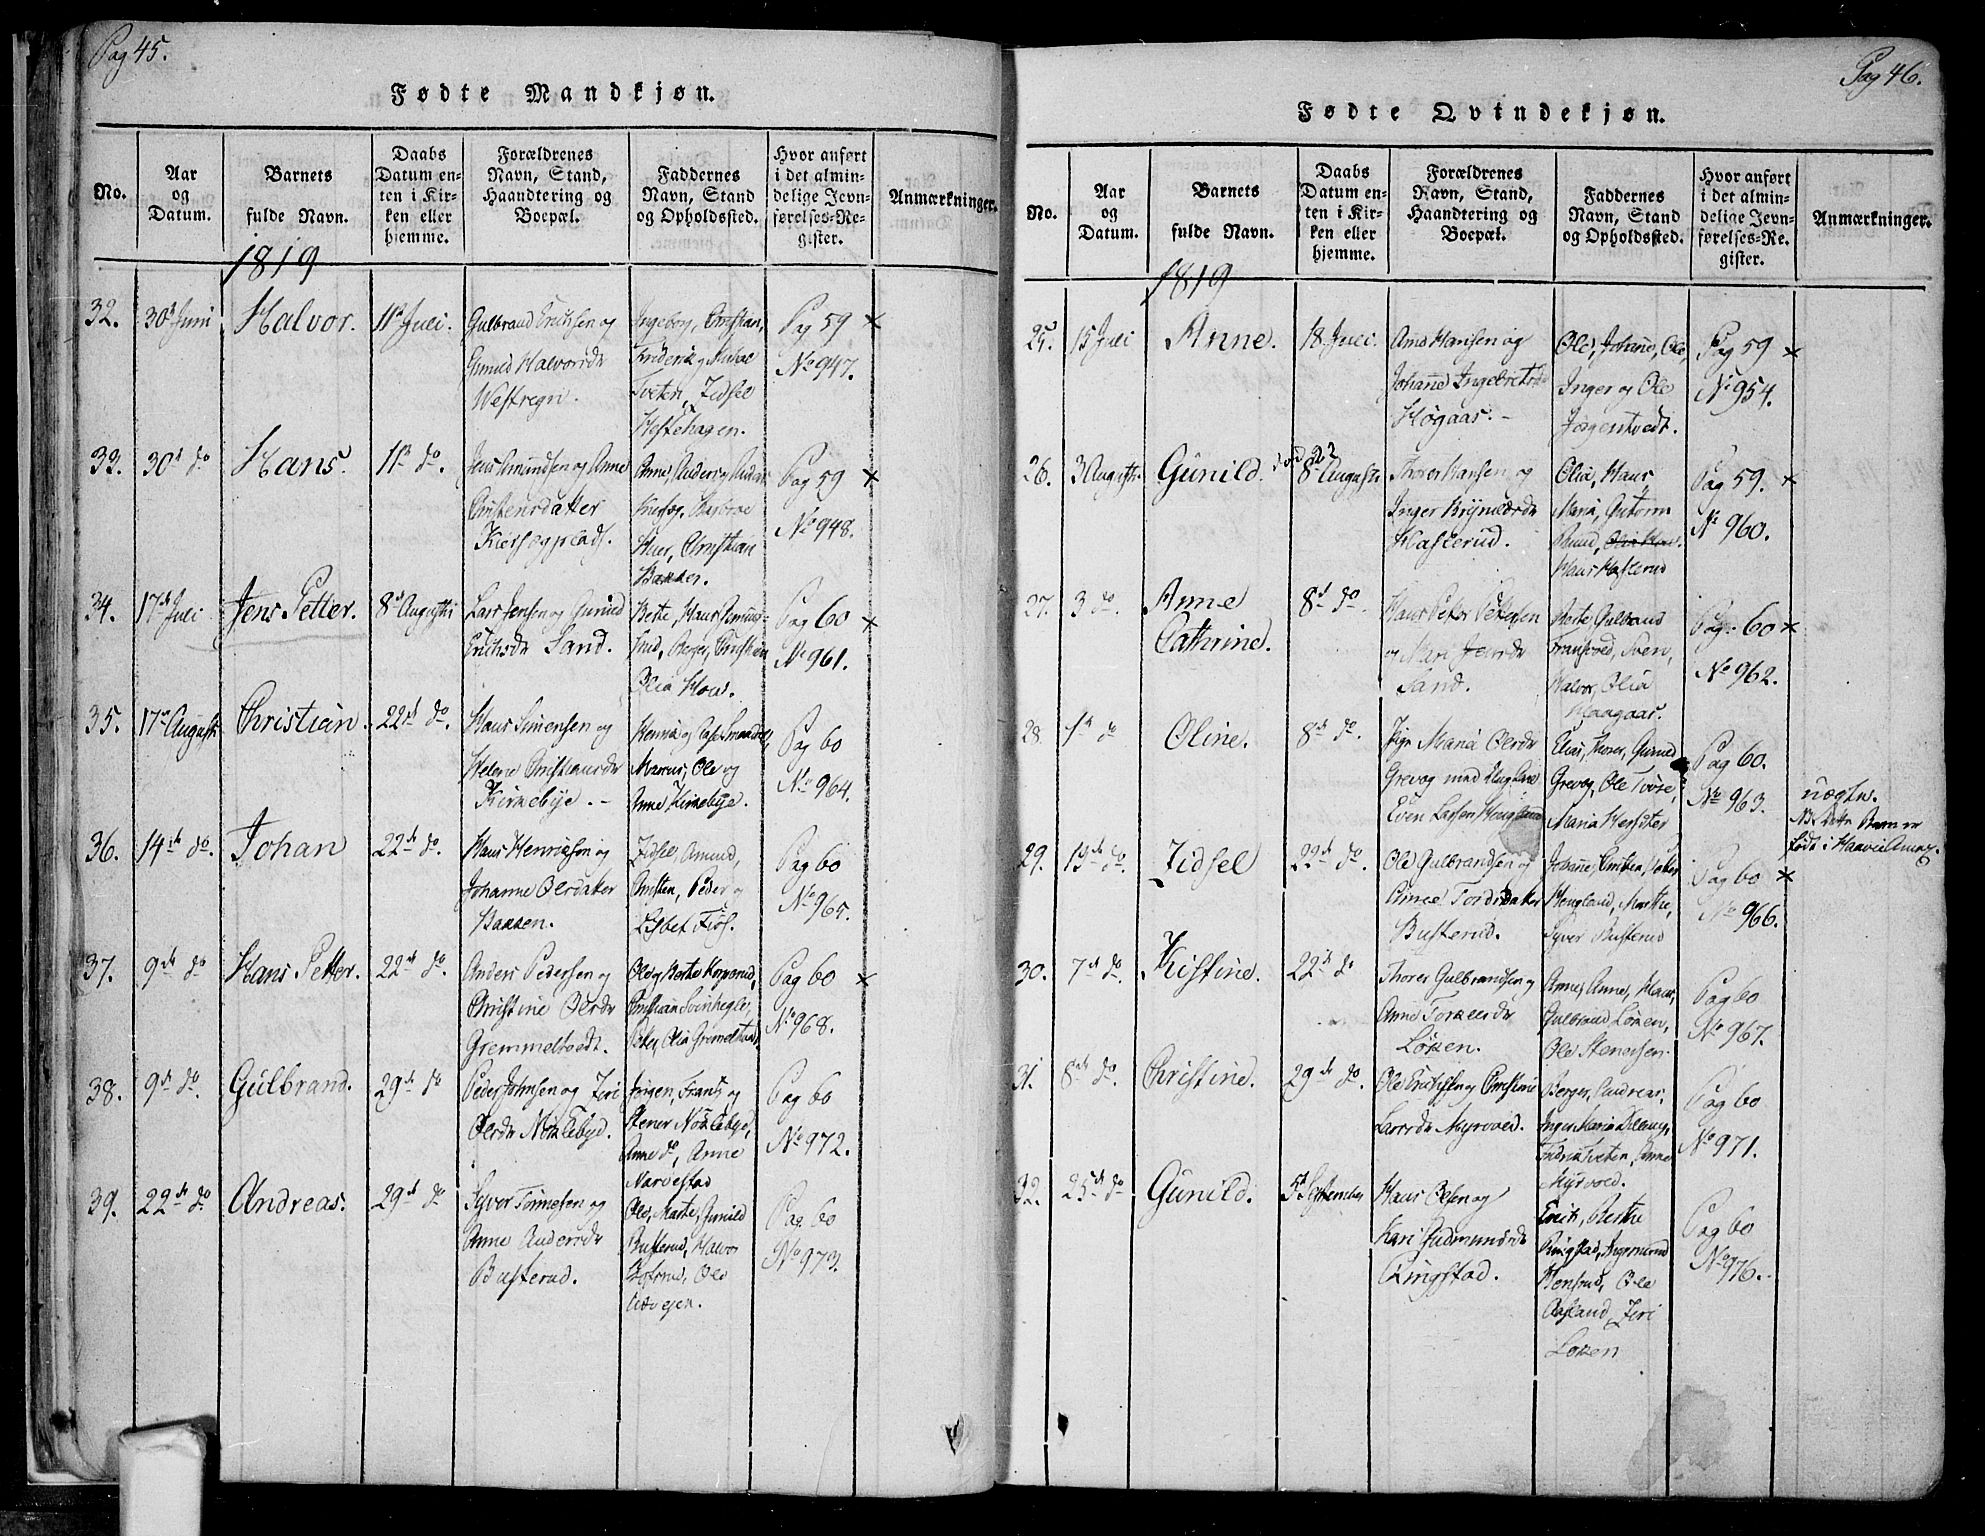 Pag 45.
Fødte Mandkjøn.
No.
Aar
og
Datum.
Barnets
fulde Navn.
Daabs
Datum en-
ten i Kir-
ken eller
hjemme.
Forældrenes
Navn, Stand,
Haandtering og
Boepæl.
Faddernes
Navn, Stand
og Opholdssted.
Hvor anført
i det almin-
delige Jevn-
førelses-Re-
gister.
Anmærkninger.
1819
32.
30t Juni
Halvor.
11t Juli.
Gulbrand Erichsen og
Gunild Halvorsdr
Westregn.
Ingeborg, Christian,
Friderik og
Tveten, Zidsel
Hestehagen.
Pag 59 ×
No 947.
33.
30t do
Hans.
11t do.
Jens Amundsen og Anne
Christensdatter
Kiersogplads.
Anne, Anders,
Huer, Christian
Bakken.
Pag 59 ×
No 948.
34.
17de Juli
Jens Petter.
8de Augusti
Lars Jensen og Gunild
Erichsdr Sand.
Berte, Hans
Berger, Christian
Olia Hous.
Pag 60 ×
No 961.
35.
17de Augusti
Christian.
22de do.
Hans Simensen og
Helene Christiansdr
Kirkebye. -
Marcus, Ole og
Anne Kirkebye.
Pag 60
No 964.
36.
14de do.
Johan
22de do.
Hans Henriksen og
Johanne Olesdatter
Bakken.
Zidsel, Amund,
Christen, Peder og
Lisbet Fiøs.
Pag 60
No 965.
37.
9de do
Hans Petter.
22de do.
Anders Pedersen og
Christine Olesdr
Gremmeltvedt.
Ole og Berte
Christian
Peter, Olia
Pag 60 ×
No 968.
38.
9de do.
Gulbrand.
29de do
Peder Johnsen og Ziri
Olesdr Nøklebye.
Jørgen, Frants og
Stener Nøklebye,
Anne do, Anne
Narvestad
Pag 60
No 972.
39.
22de do
Andreas.
29de do
Syver Tormesen og
Anne Andersdr
Busterud.
Ole, Marte, Gunild
Busterud, Halvor
Ole
Pag. 60
No 973.
Pag 46.
Fødte Qvindekjøn.
No.
Aar
og
Datum.
Barnets
fulde Navn.
Daabs
Datum en-
ten i Kir-
ken eller
hjemme.
Forældrenes
Navn, Stand,
Haandtering og
Boepæl.
Faddernes
Navn, Stand
og Opholdssted.
Hvor anført
i det almin-
delige Jevn-
førelses-Re-
gister.
Anmærkninger.
1819
25.
15 Juli
Anne.
18 Juli.
Hansen og
Johanne Ingebretsdr
Høgaas. -
Ole, Johanne, Ole,
Inger og Ole
Jørgentvedt.
Pag 59 ×
No 954.
26.
3 Augusti.
Gunild.
8de Augusti
Thorer Hansen og
Inger Brynildsdr
Hasterud.
Olia, Hans,
Maria, Gutorm
Hans Hasterud
Pag 59. ×
No 960.
27.
3 do.
Anne
Cathrine.
8de do.
Hans Peter Pettersen
og Mari Jensdr
Sand.
Berte, Gulbrand
Sven,
Halvor, Olia
Haagaas.
Pag. 60 ×
No 962.
28
1de do
Oline.
8de do.
Pige Maria Olesdr
Grevog med Ungkarl
Even Larsen Hougland
Elias, Thorer, Gunild
Grevog, Ole
Maria
Pag 60.
No 963.
nægter.
NB Dette Barn er
født i
29.
13de do.
Zidsel
22de do.
Ole Gulbrandsen og
Anne Tordsdatter
Busterud.
Johanne, Christen,
Hougland, Marthe,
Syver Busterud
Pag 60 ×
No 966.
30.
7de do.
Kistine.
22de do
Thorer Gulbrandsen og
Anne Torkelsdr
Løken.
Anne, Anne, Hans,
Gulbrand Løken,
Ole Stenersen.
Pag 60
No 967.
31.
8de do.
Christine.
29de do.
Ole Erichsen og Christine
Larsdr Myrvold.
Berger, Andreas,
Inger Maria
Tveten, Anne
Myrvold.
Pag 60
No 971.
32.
25de do
Gunild.
5t September
Hans Olsen og
Kari Gudmundsdr
Ringstad.
Erich, Berthe
Ringstad, Ingemund
Ole
Aasland, Ziri
Løken
Pag 60
No 976.